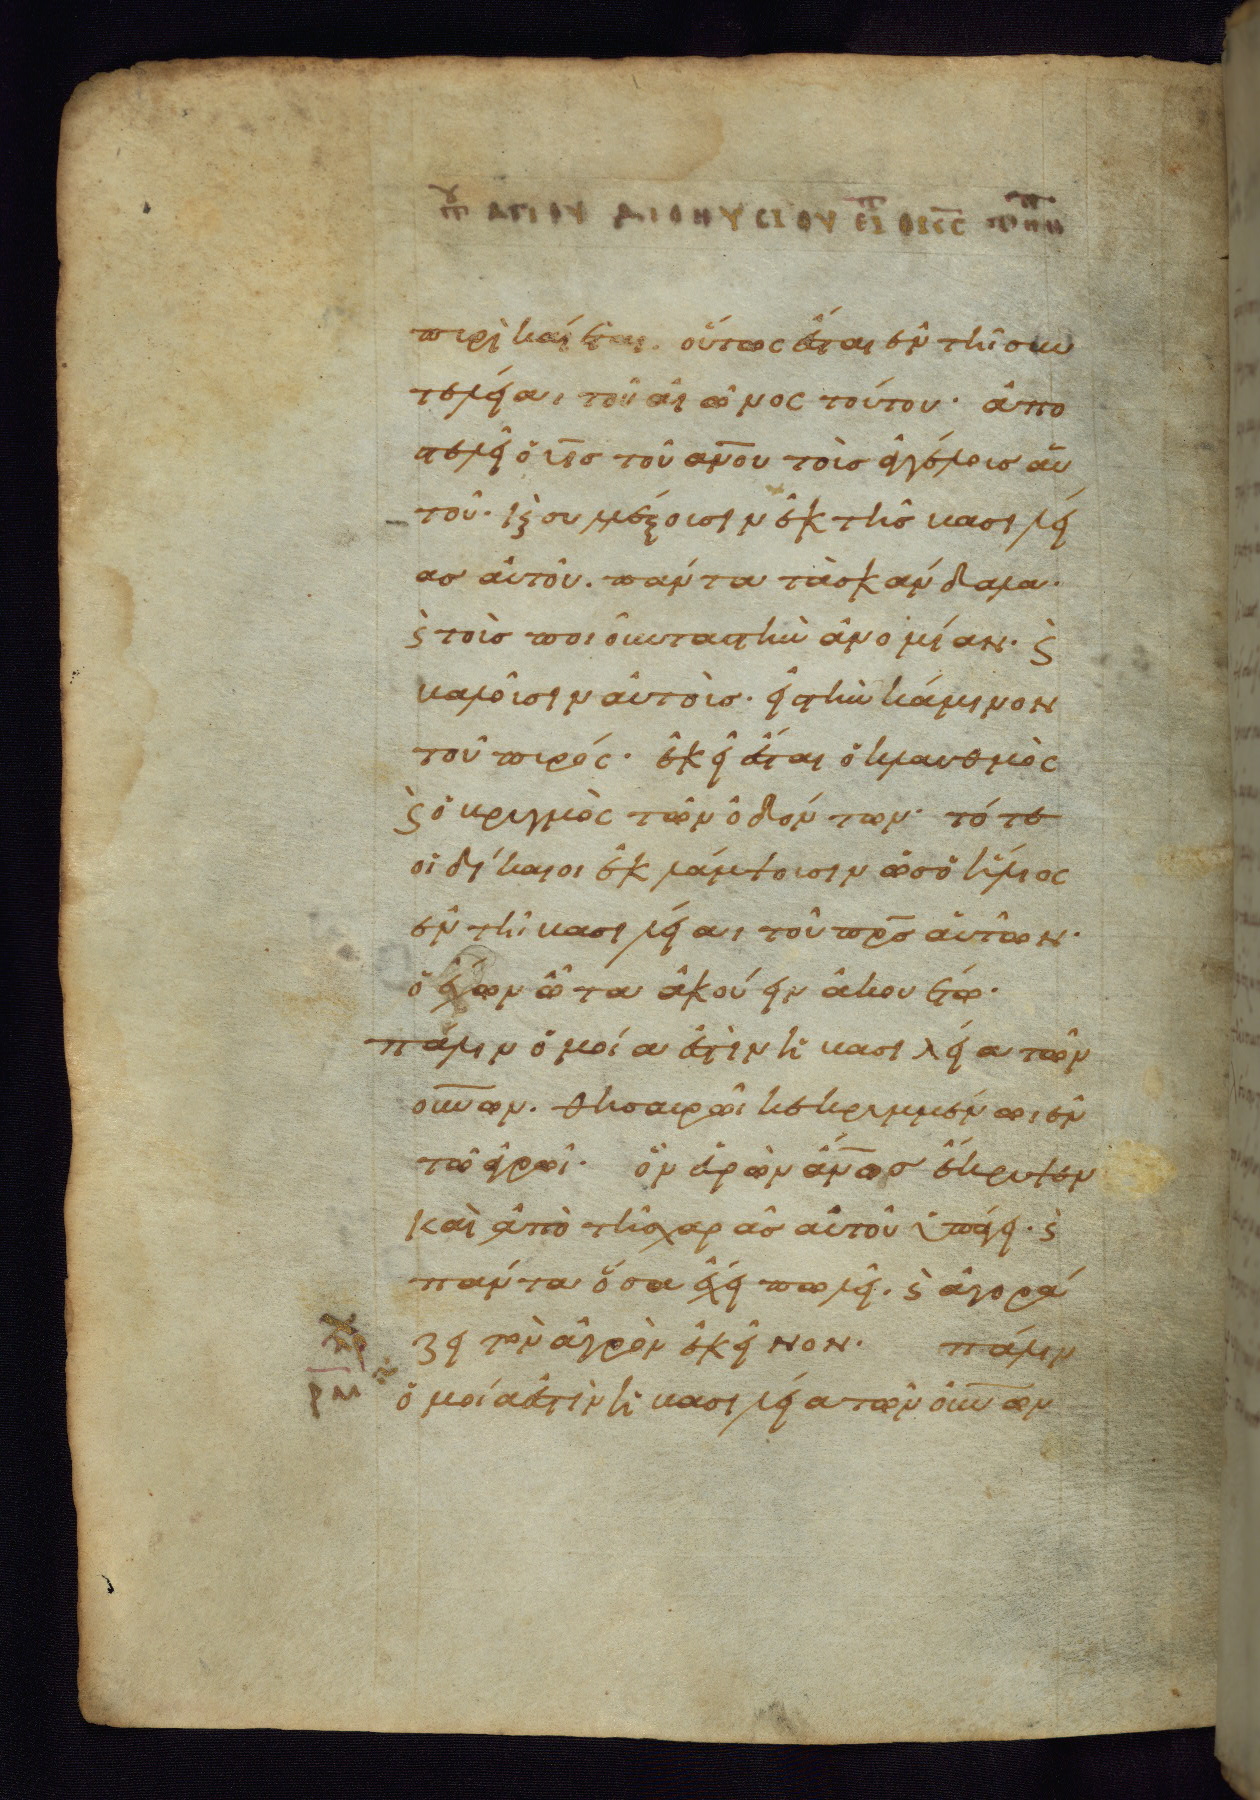 ΤΟΥ ΑΓΙΟΥ ΔΙΟΝΥΣΙΟΥ
πυρὶ καίεται. οὕτως ἔσται ἐν τῆ συν
τελεία τοῦ αἰῶνος τούτου. ἀπο
στελεῖ ὁ ὑ̅ς̅ τοῦ ἀ̅ν̅ο̅υ̅ τοὺς ἀγγέλους αὐ
τοῦ. καὶ συλλέξουσιν ἐκ τῆς βασιλεί
ας αὐτοῦ. πάντα τὰ σκάνδαλα.
ϗ τοὺς ποιοῦντας τὴν ἀνομίαν. ϗ
βαλοῦσιν αὐτοὺς. εἰς τὴν κάμινον
τοῦ πυρός. ἐκεῖ ἔσται ὁ κλαυθμὸς
ϗ ὁ βρυγμὸς τῶν ὀδόντων. τότε
οἱ δίκαιοι ἐκλάμψουσιν ὡς ὁ ἥλιος
ἐν τῆ βασιλεία τοῦ π̅ρ̅ς̅ αὐτῶν.
ὁ ἔχων ὦτα ἀκούειν ἀκουέτω.
πάλιν ὁμοία ἐστὶν ἡ βασιλεία τῶν
ο̅υ̅ν̅ων. θησαυρῶι κεκρυμμένωι ἐν
τῶ ἀγρῶι. ὃν εὑρὼν ἄ̅ν̅ος ἔκρυψεν
καὶ ἀπὸ τῆς χαρᾶς αὐτοῦ ὑπάγει. ϗ
πάντα ὅσα ἔχει πωλεῖ. ϗ ἀγορά
ζει τὸν ἀγρὸν ἐκεῖνον. πάλιν
ὁμοία ἐστὶν ἡ βασιλεία τῶν ο̅υ̅ν̅ων